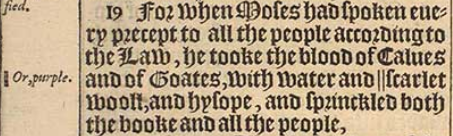 fied.
19 For when Moses had spoken eue-
ry precept to all the people according to
the Law, he tooke the blood of Calues
‖ Or, purple.
and of Goates, with water and ‖ scarlet
wooll, and hysope, and sprinckled both
the booke and all the people,